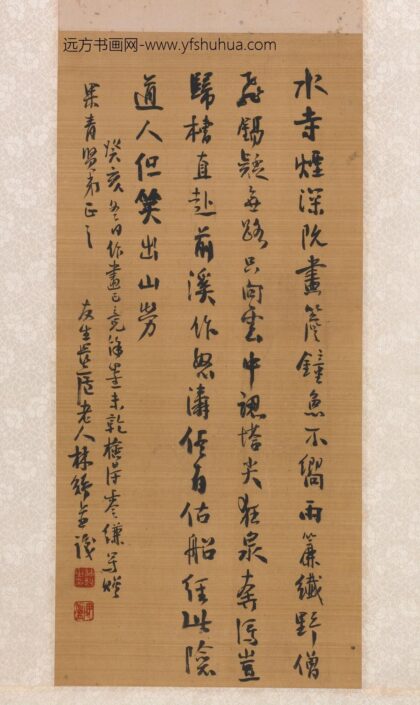 水寺煙深院畫簷鐘魚不隔雨簾纖野僧
飛錫疑無路只向雲中認塔尖狂泉奔瀉豈
歸槽直赴前溪作怒濤估船經此險
道人但笑出山勞
癸亥冬日作畫已竟餘墨未乾
果青賢弟正之
友生畏廬老人林紓並識
远方书画网-www.yfshuhua.com